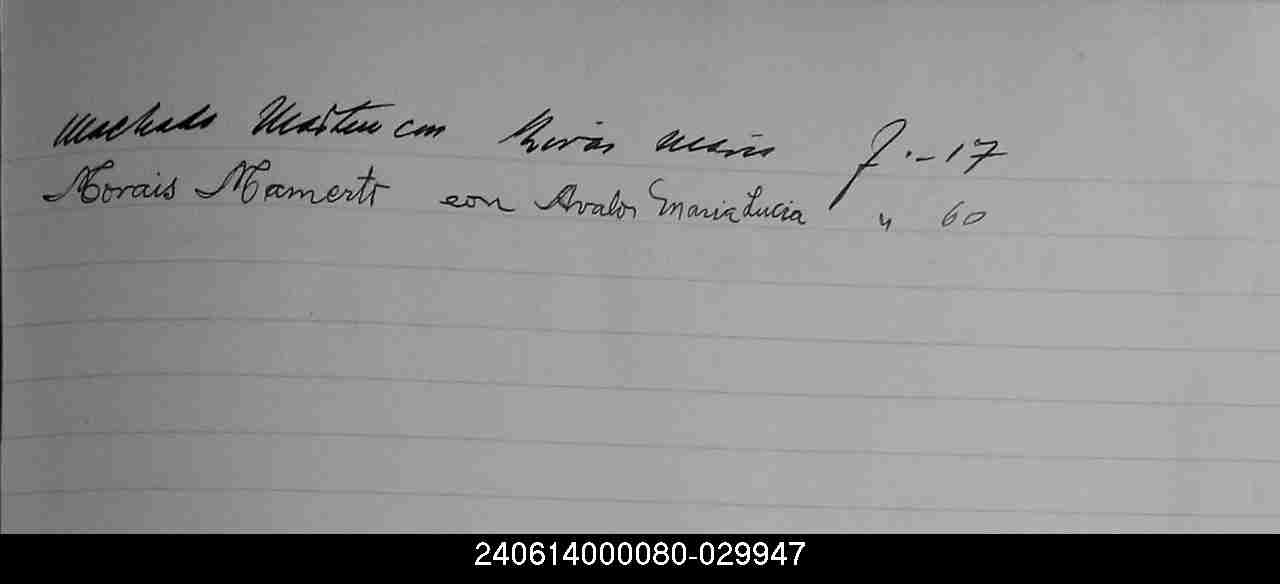 Machado Martin con Rivas Maria f.- 17
Morais Mamerto con Avalos Maria Lucia " 60
240614000080-029947